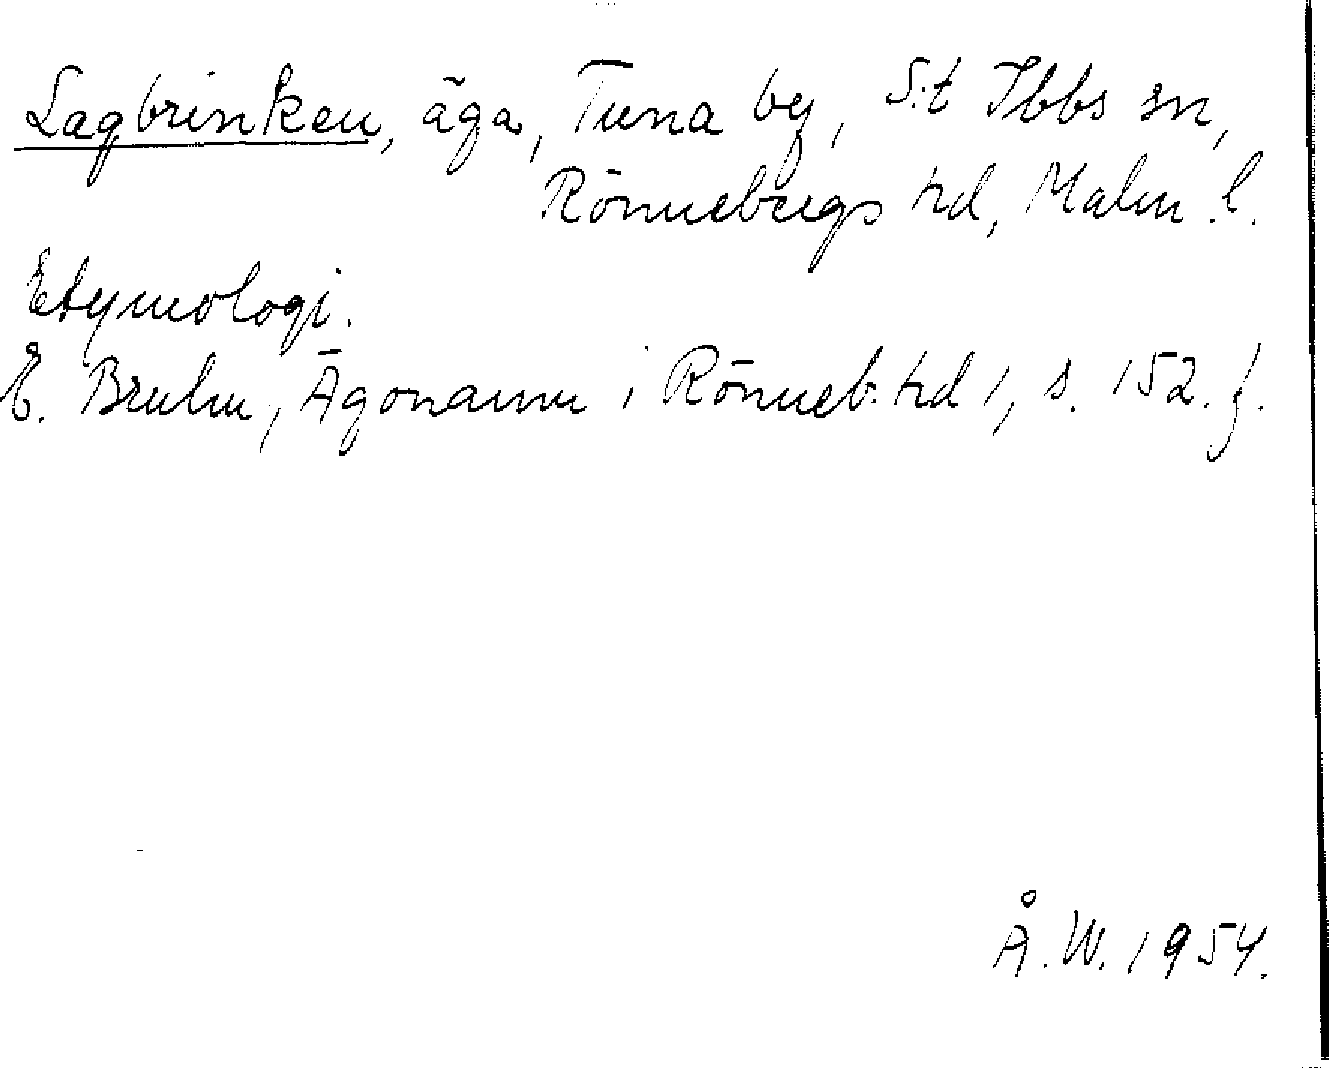 Lagbrinken, äga, Tuna by, S:t Ibbs sn,
Rönnebergs hd, Malm. l.
Etymologi.
E. Bruhn, Ägonamn i Rönneb. hd 1, s. 152. f.
Å. W. 1954.